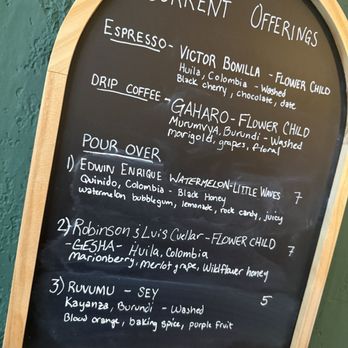 CURRENT OFFERINGS
ESPRESSO - VICTOR BONILLA - FLOWER CHILD
Huila, Colombia - Washed
Black cherry, chocolate, date
DRIP COFFEE - GAHARO - FLOWER CHILD
MURUMVYA, BURUNDI - Washed
marigold, grapes, floral
POUR OVER
1) EDWIN ENRIQUE WATERMELON - LITTLE WAVES 7
Quinido, Colombia - Black Honey
watermelon bubblegum, lemonade, rock candy, juicy
2) Robinson & Luis Cuellar - FLOWER CHILD 7
- GESHA - Huila, Colombia
marionberry, merlot grape, Wildflower honey
3) RUVUMU - SEY 5
Kayanza, Burundi - Washed
Blood orange, baking spice, purple fruit